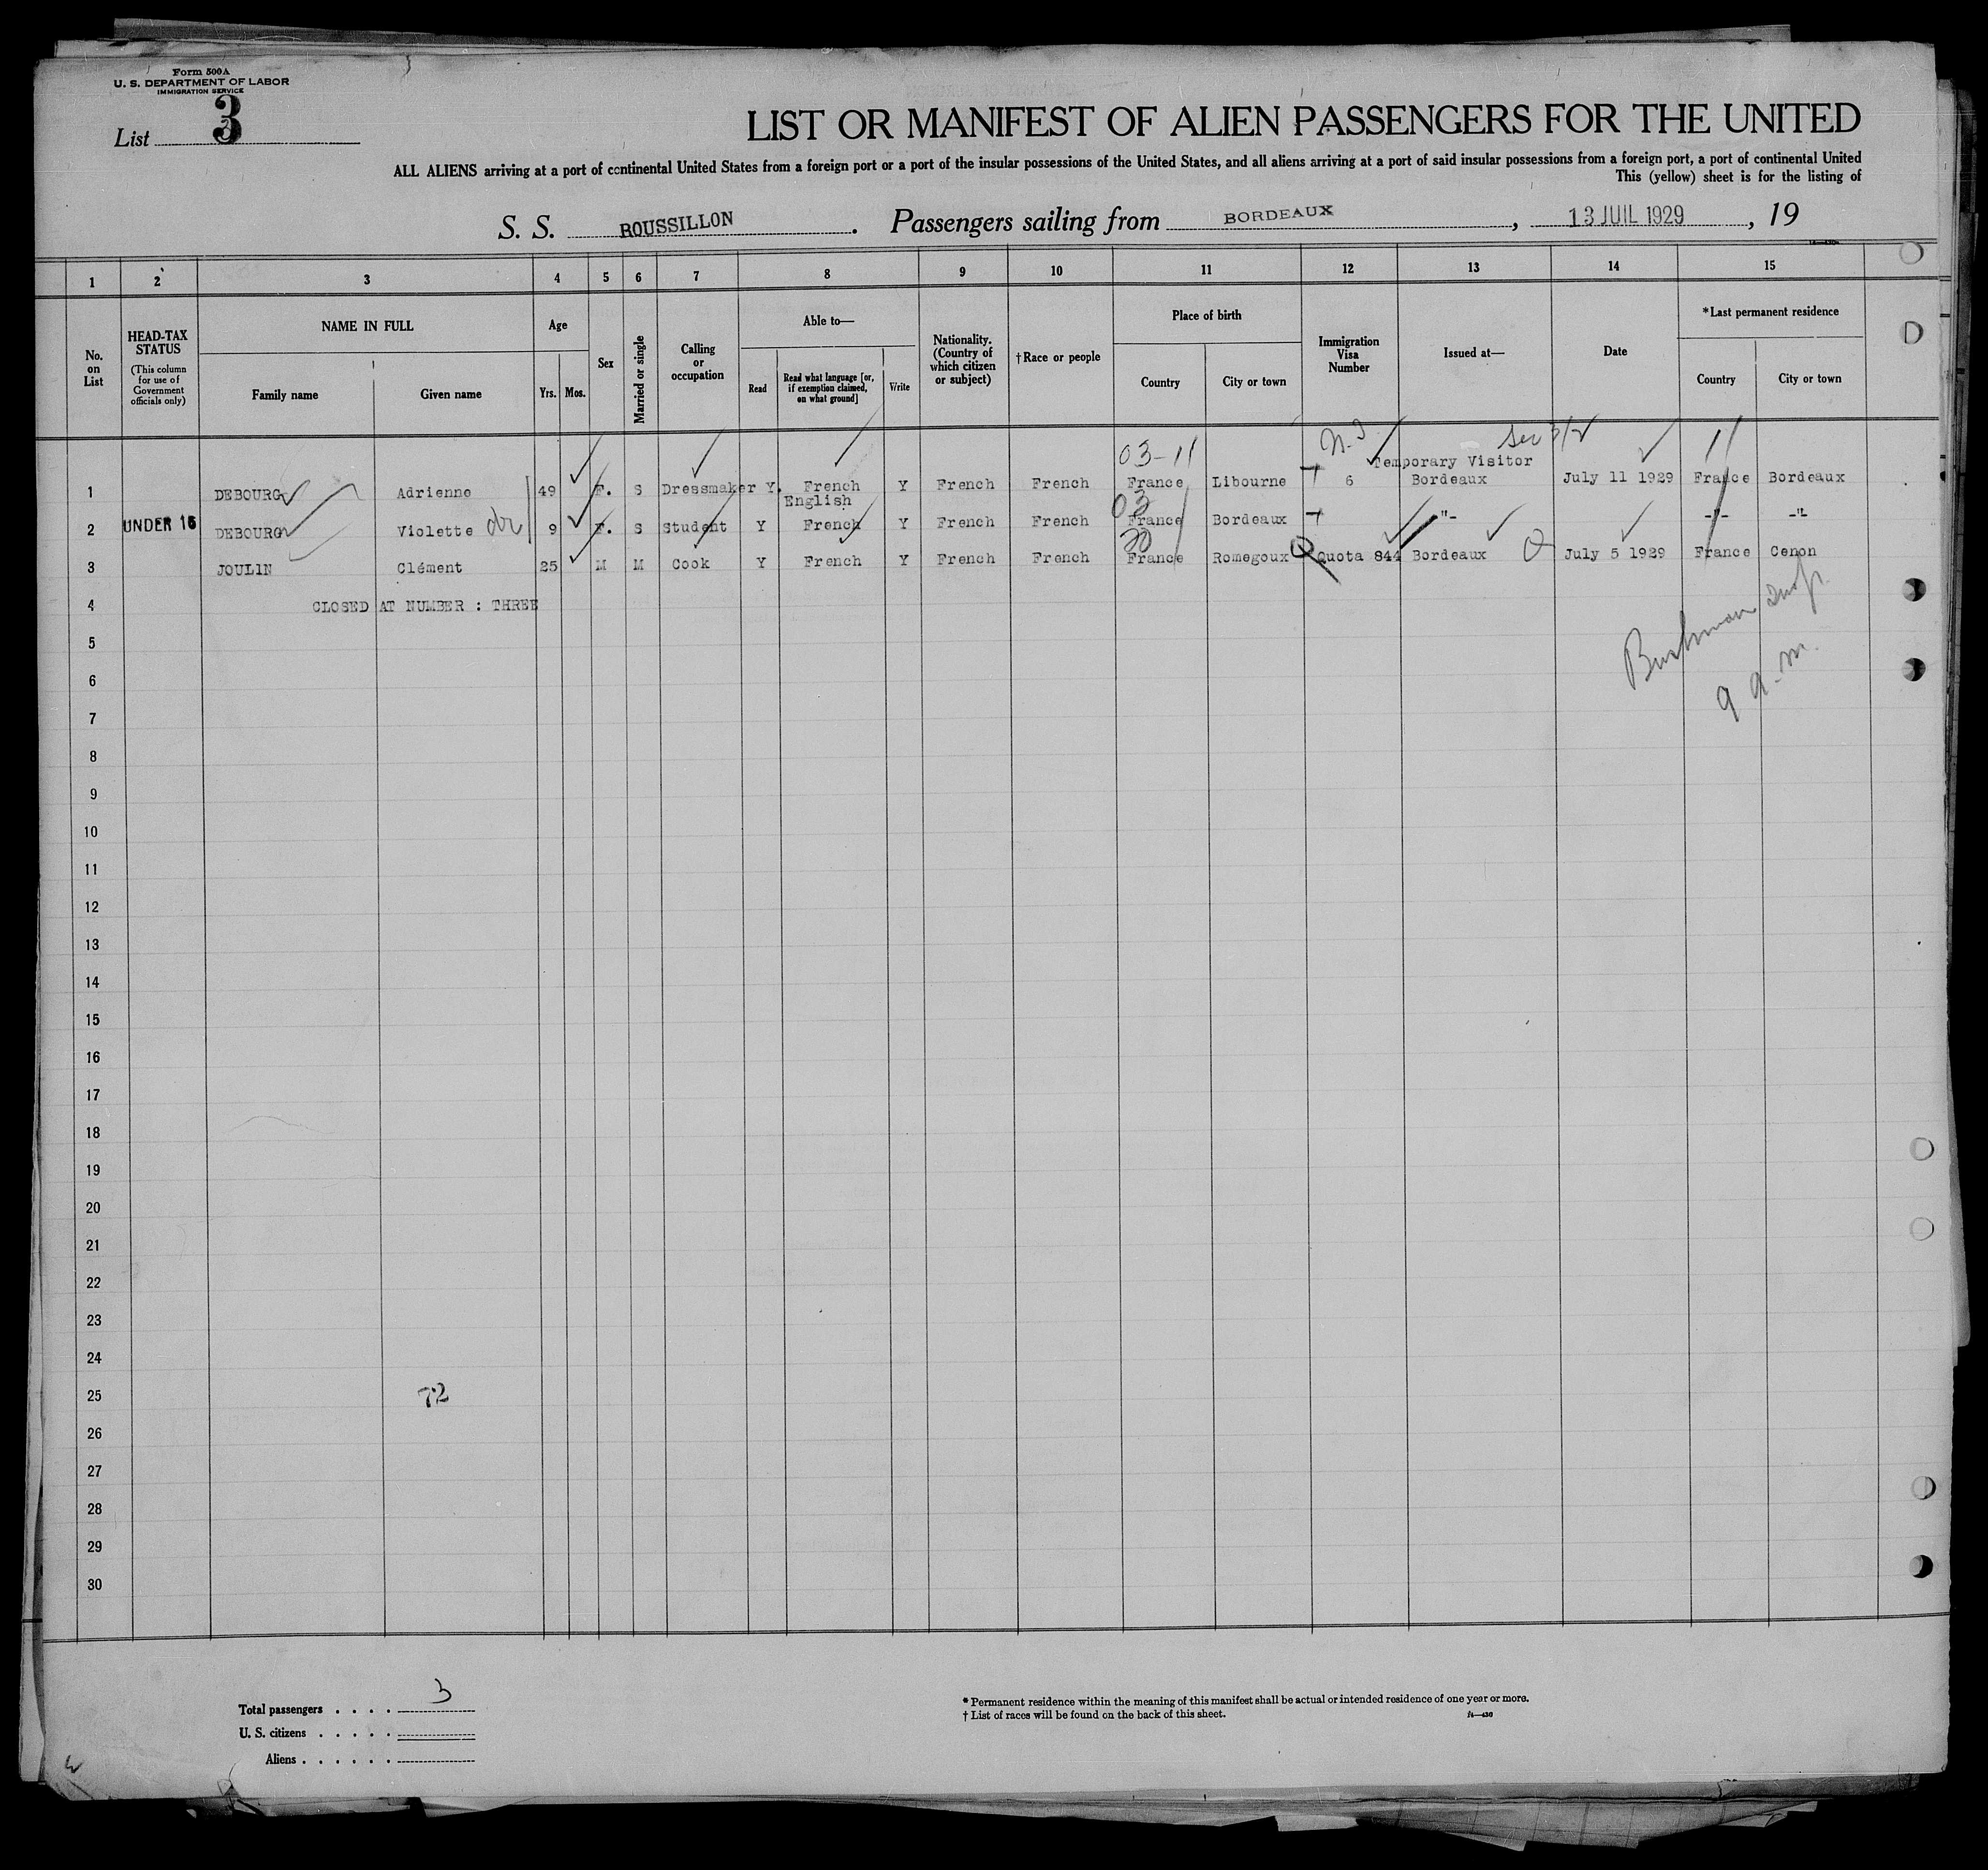 Form 500A
U. S. DEPARTMENT OF LABOR
IMMIGRATION SERVICE
List 3
LIST OR MANIFEST OF ALIEN PASSENGERS FOR THE UNITED
ALL ALIENS arriving at a port of continental United States from a foreign port or a port of the insular possessions of the United States, and all aliens arriving at a port of said insular possessions from a foreign port, a port of continental United
This (yellow) sheet is for the listing of
S. S. ROUSSILLON . Passengers sailing from BORDEAUX , 13 JUIL 1929 , 19
1 2 3 4 5 6 7 8 9 10 11 12 13 14 15
No. on List
HEAD-TAX STATUS
(This column for use of Government officials only)
NAME IN FULL
Family name
Given name
Age
Yrs. Mos.
Sex
Married or single
Calling or occupation
Able to—
Read
Read what language [or, if exemption claimed, on what ground]
Write
Nationality. (Country of which citizen or subject)
†Race or people
Place of birth
Country
City or town
Immigration Visa Number
Issued at—
Date
*Last permanent residence
Country
City or town
03-11
Temporary Visitor
1 DEBOURG Adrienne 49 F. S Dressmaker Y. French Y French French France Libourne 6 Bordeaux July 11 1929 France Bordeaux
English
03
UNDER 16
2 DEBOURG Violette 9 F. S Student Y French Y French French France Bordeaux -"- -"- -"-
3 JOULIN Clément 25 M M Cook Y French Y French French France Romegoux Quota 844 Bordeaux July 5 1929 France Cenon
4 CLOSED AT NUMBER : THREE
5
6
9 a.m.
7
8
9
10
11
12
13
14
15
16
17
18
19
20
21
22
23
24
25 72
26
27
28
29
30
Total passengers . . . . 3
U. S. citizens . . . . .
Aliens . . . . . .
* Permanent residence within the meaning of this manifest shall be actual or intended residence of one year or more.
† List of races will be found on the back of this sheet.